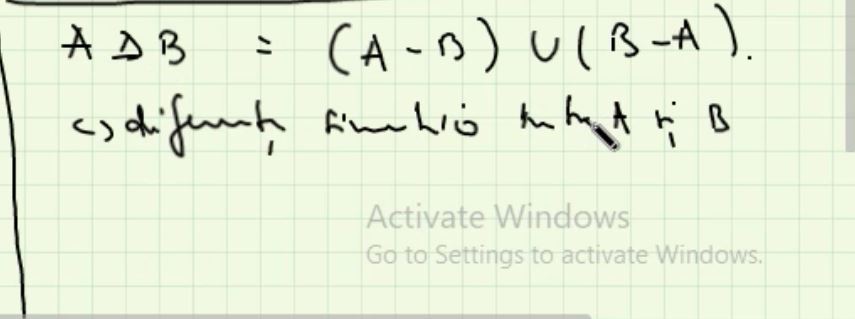 A Δ B = (A - B) ∪ (B - A).
c) diferența simetrică între A și B
Activate Windows
Go to Settings to activate Windows.